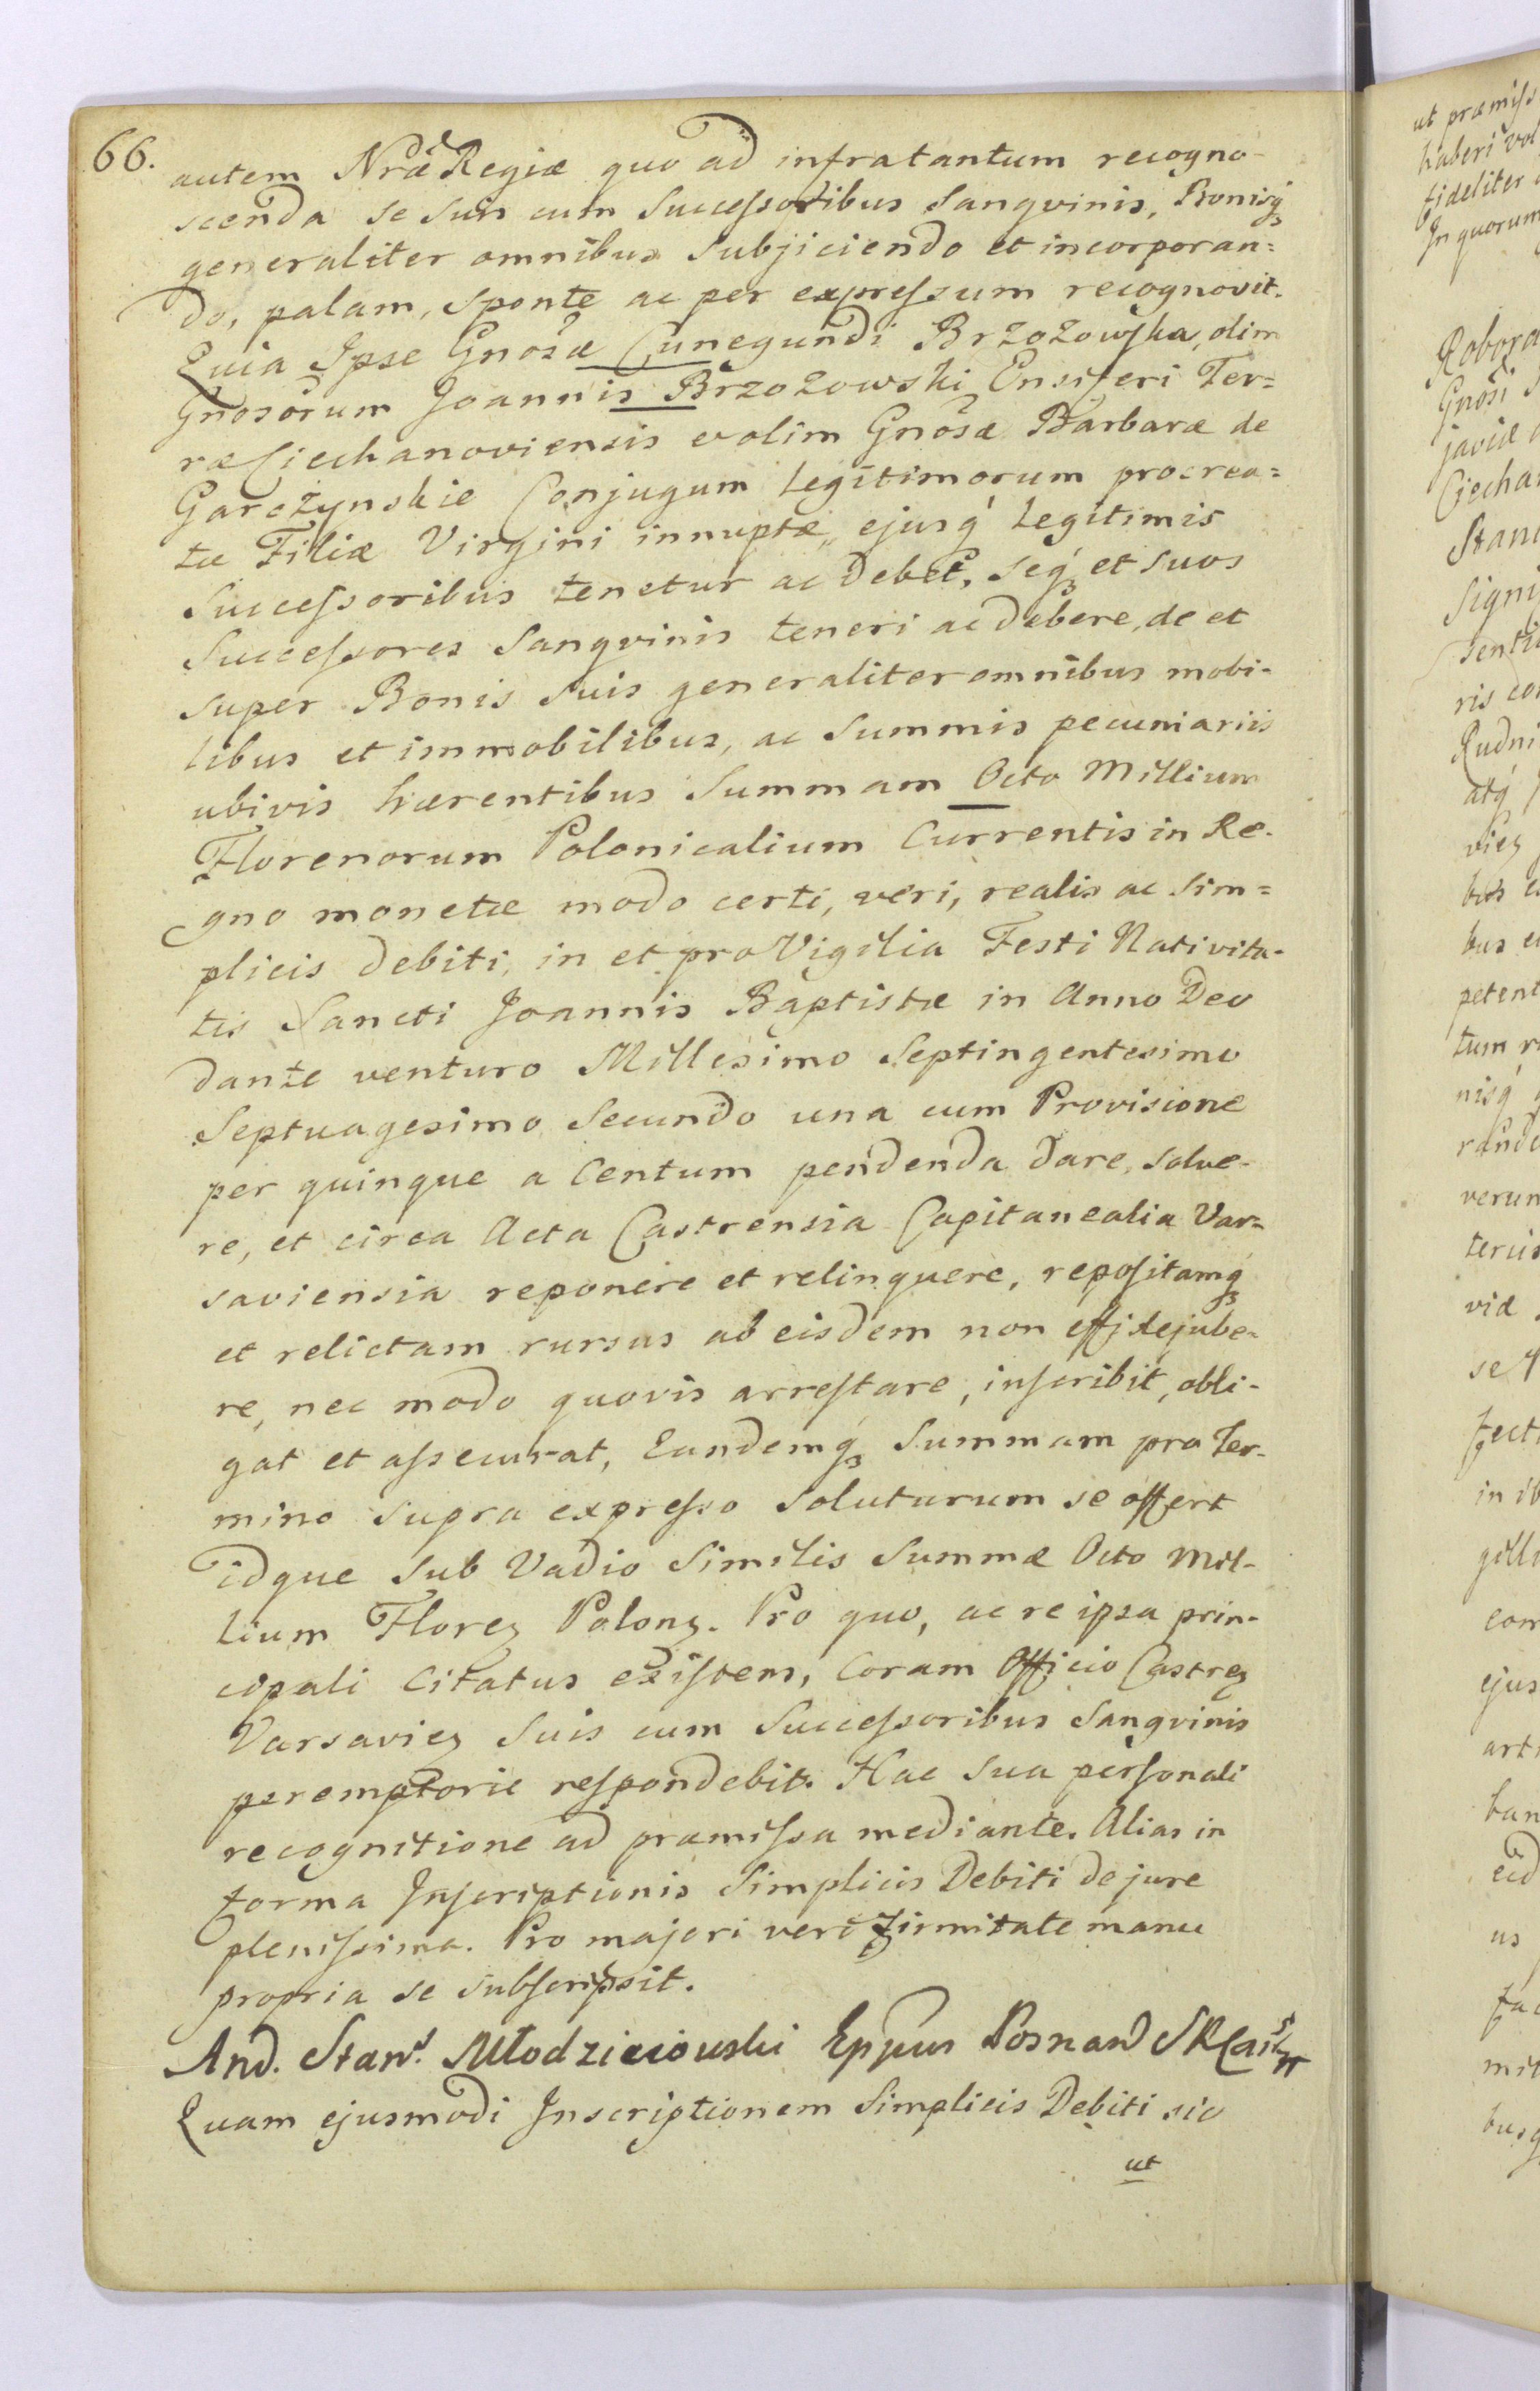 66.
autem Nrae Regiae quo ad infratantum recogno-
scenda se suis cum Successoribus Sangvinis, Bonisq
generaliter omnibus subjiciendo et incorporan=
do, palam, sponte ac per expressum recognovit.
Quia Ipse Gnosae Cunegundi Brzozowska, olim
Gnosorum Joannis Brzozowski Ensiferi Ter=
rae Ciechanoviensis et olim Gnosae Barbarae de
Garczynskie Conjugum Legitimorum procrea=
tae Filiae Virgini innuptae, ejusq Legitimis
Successoribus tenetur ac debet, seq et suos
Successores Sangvinis teneri ac debere, de et
super Bonis suis generaliter omnibus mobi-
libus et immobilibus, ac Summis pecuniariis
ubivis haerentibus Summam Octo Millium
Florenorum Polonicalium Currentis in Re-
gno monetae modo certi, veri, realis ac sim=
plicis debiti, in et pro Vigilia Festi Nativita-
tis Sancti Joannis Baptistae in Anno Deo
dante venturo Millesimo Septingentesimo
Septuagesimo Secundo una cum Provisione
per quinque a Centum pendenda dare, solve-
re, et circa Acta Castrensia Capitanealia Var=
saviensia reponere et relinquere, repositamq
et relictam rursus ab eisdem non effidejube=
re, nec modo quovis arrestare, inscribit, obli-
gat et assecurat, Eandemq Summam pro Ter-
mino supra expresso soluturum se offert
idque sub Vadio similis Summae Octo Mil-
lium Florez Polonz. Pro quo, ac re ipsa prin-
cipali Citatus existens, Coram Officio Castrez
Varsaviez suis cum Successoribus Sangvinis
peremptorie respondebit. Hac sua personali
recognitione ad praemissa mediante. Alias in
forma Inscriptionis Simplicis Debiti de jure
plenissima. Pro majori vero firmitate manu
propria se subscripsit.
And. Stans. Młodzieiowski Eppus Posnan S R
Quam ejusmodi Inscriptionem Simplicis Debiti sic
ut
ut praemiss
haberi vol
fideliter
In quorum
Robora
Gnosi
javiae
Ciechan
Stan
signi
senti
ris co
Rudni
atq
viez
bus
petent
tum
nisq
verun
terius
viae
se
fect
in ib
com
ejus
us